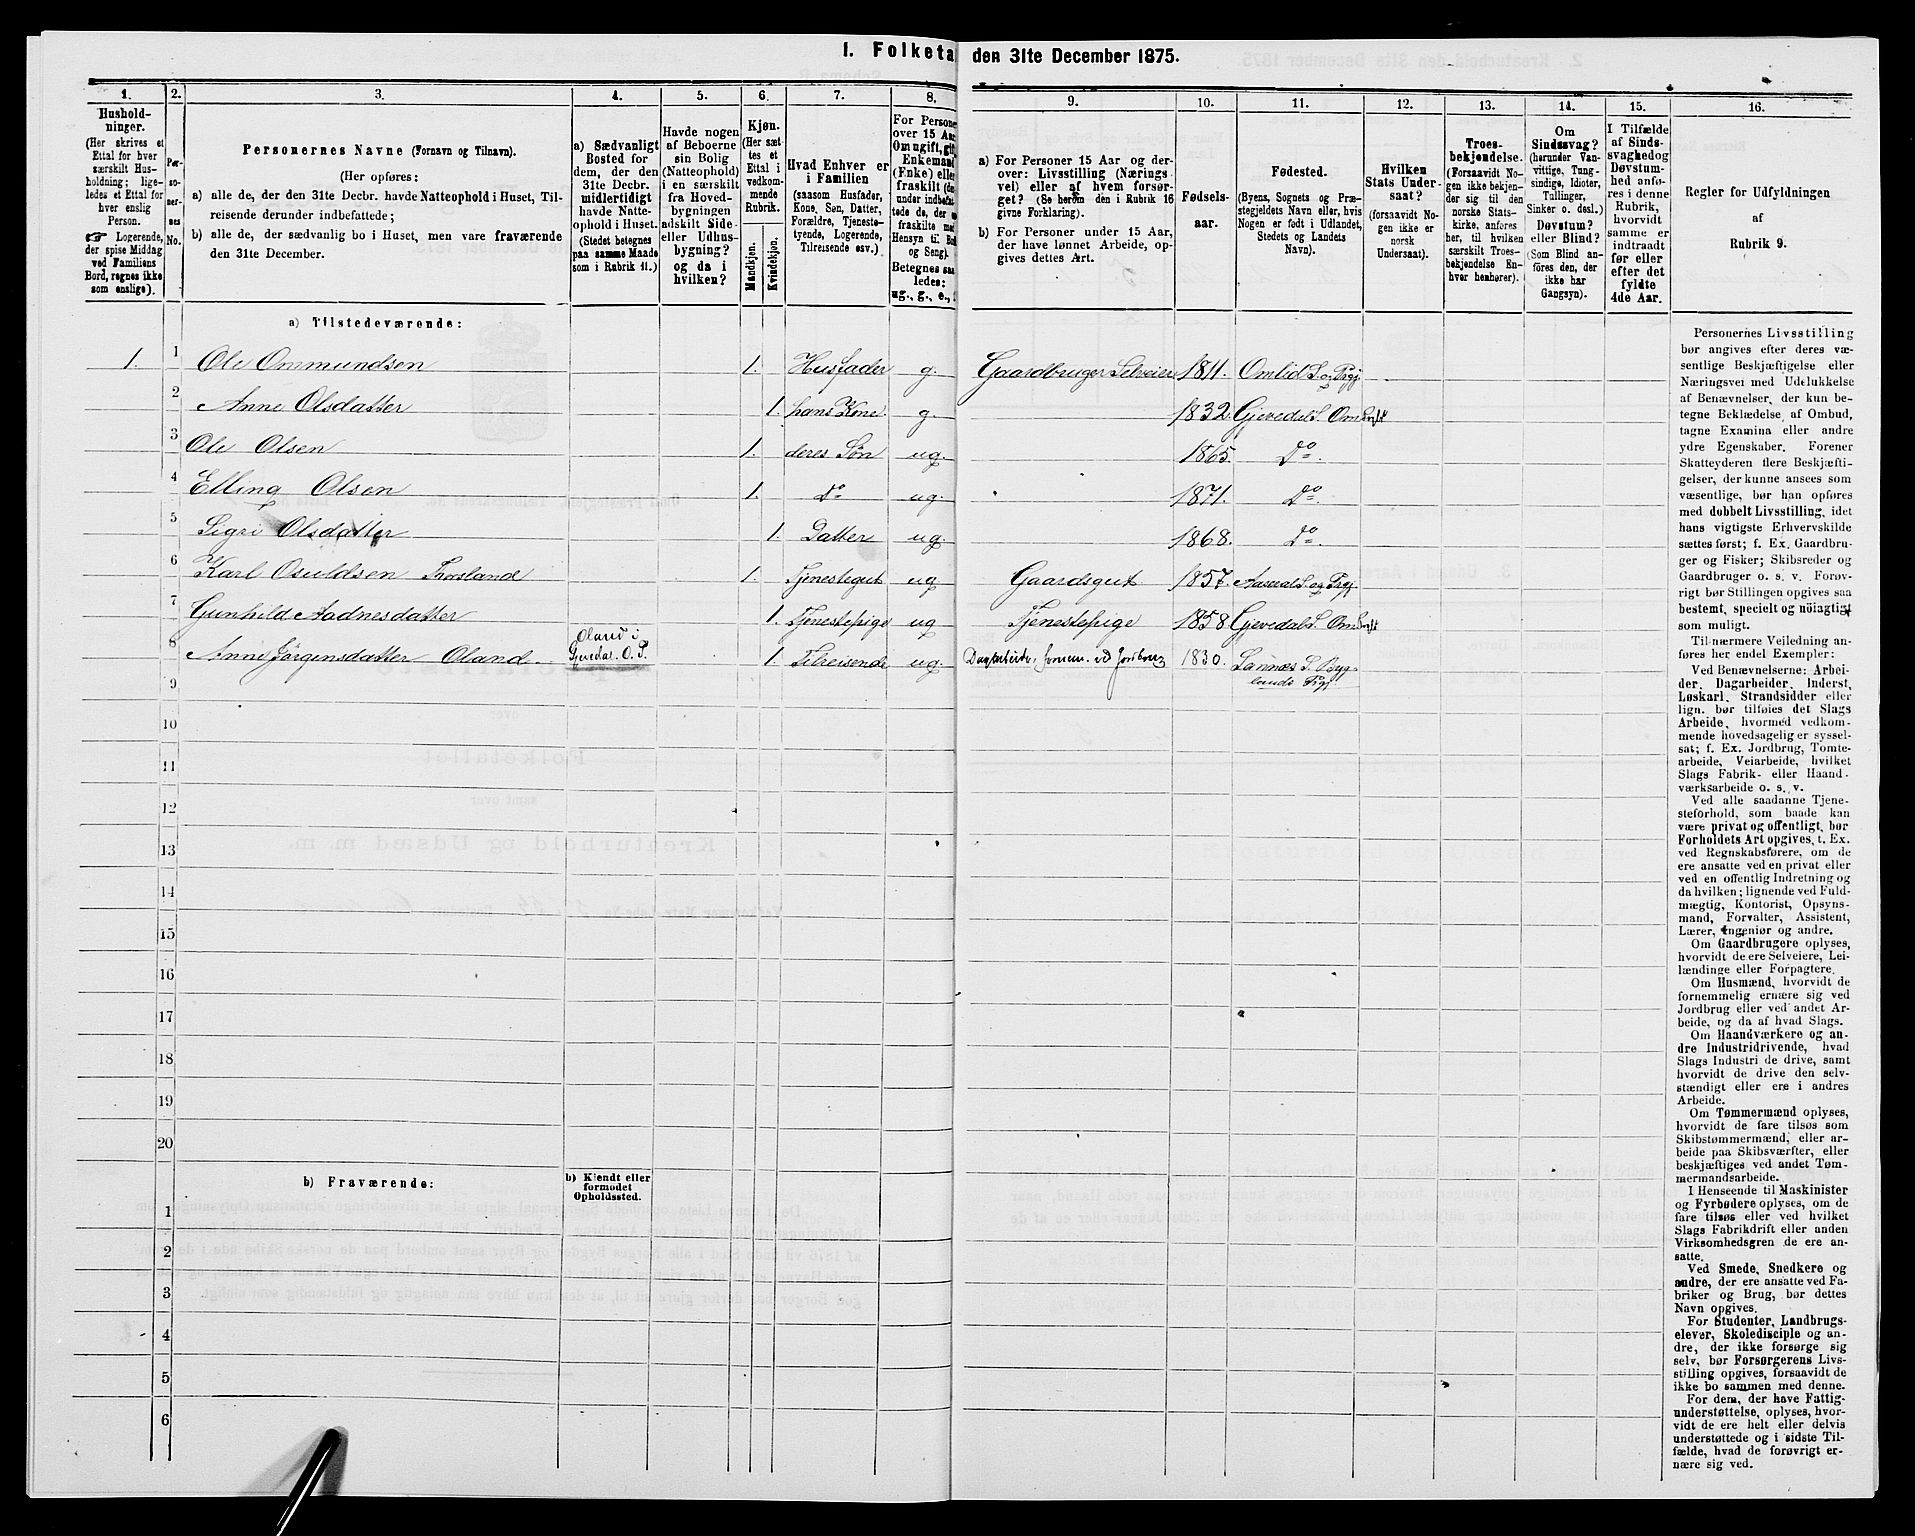 1. Folketa den 31te December 1875.
1. 2. 3. 4. 5. 6. 7. 8. 9. 10. 11. 12. 13. 14. 15. 16.
Hushold-
ninger.
(Her skrives et
Ettal for hver
særskilt Hus-
holdning; lige-
ledes et Ettal for
hver enslig
Person.
☞ Logerende,
der spise Middag
ved Familiens
Bord, regnes ikke
som enslige).
Per-
so-
ner-
nes
No.
Personernes Navne (Fornavn og Tilnavn).
(Her opføres:
a) alle de, der den 31te Decbr. havde Natteophold i Huset, Til-
reisende derunder indbefattede;
b) alle de, der sædvanlig bo i Huset, men vare fraværende
den 31te December.
a) Sædvanligt
Bosted for
dem, der den
31te Decbr.
midlertidigt
havde Natte-
ophold i Huset.
(Stedet betegnes
paa samme Maade
som i Rubrik 11.)
Havde nogen
af Beboerne
sin Bolig
(Natteophold)
i en særskilt
fra Hoved-
bygningen
adskilt Side-
eller Udhus-
bygning?
og da i
hvilken?
Kjøn.
(Her sæt-
tes et
Ettal i
vedkom-
mende
Rubrik.
Mandkjøn.
Kvindekjøn.
Hvad Enhver er
i Familien
(saasom Husfader,
Kone, Søn, Datter,
Forældre, Tjeneste-
tyende, Logerende,
Tilreisende osv.)
For Persone
over 15 Aar
Om ugift, gif
Enkemand
(Enke) elle
fraskilt (de
under indbefat
tede de, der e
fraskilte me
Hensyn til Bo
og Seng).
Betegnes saa
ledes:
ug., g., e.,
a) For Personer 15 Aar og der-
over: Livsstilling (Nærings-
vei) eller af hvem forsør-
get? (Se herom den i Rubrik 16
givne Forklaring).
b) For Personer under 15 Aar,
der have lønnet Arbeide, op-
gives dettes Art.
Fødsels-
aar.
Fødested.
(Byens, Sognets og Præ-
stegjeldets Navn eller, hvis
Nogen er født i Udlandet,
Stedets og Landets
Navn).
Hvilken
Stats Under-
saat?
(forsaavidt No-
gen ikke er
norsk
Undersaat).
Troes-
bekjendelse.
(Forsaavidt No-
gen ikke bekjen-
der sig til den
norske Stats-
kirke, anføres
her, til hvilken
særskilt Troes-
bekjendelse En-
hver henhører).
Om
Sindssvag?
(herunder Van-
vittige, Tung-
sindige, Idioter,
Tullinger,
Sinker o. desl.)
Døvstum?
eller Blind?
(Som Blind an-
føres den, der
ikke har
Gangsyn).
I Tilfælde
af Sinds-
svaghed og
Døvstum-
hed anfø-
res i denne
Rubrik,
hvorvidt
samme er
indtraadt
før eller
efter det
fyldte
4de Aar.
Regler for Udfyldningen
af
Rubrik 9.
a) Tilstedeværende:
1. 1 Ole Ommundsen 1. Husfader g. Gaardbruger Selveier 1811. Omlid S. og Prgj.
2 Anne Olsdatter 1. hans Kone g 1832. Gjevedal S. Oml. Prgj
3 Ole Olsen 1. deres Søn ug. 1865. Do.
4 Elling Olsen 1. Do ug. 1871. Do.
5 Sigri Olsdatter 1. Datter ug. 1868. Do.
6 Karl Osuldsen Trosland 1. Tjenestegut ug Gaardsgut 1857. Aaseral S. og Prgj
7 Gunhild Aadnesdatter 1. Tjenestepige ug Tjenestepige 1858 Gjevedal S. Oml. Prgj
8 Anne Jörgensdatter Oland. Oland i Gjevedal O. P. 1. Tilreisende ug. 1830. Sannæs S. Byg-
lands Prgj
9
10
11
12
13
14
15
16
17
18
19
20
b) Fraværende:
b) Kjendt eller
formodet
Opholdssted.
1
2
3
4
5
6
Personernes Livsstilling
bør angives efter deres væ-
sentlige Beskjæftigelse eller
Næringsvei med Udelukkelse
af Benævnelser, der kun be-
tegne Beklædelse af Ombud,
tagne Examina eller andre
ydre Egenskaber. Forener
Skatteyderen flere Beskjæfti-
gelser, der kunne ansees som
væsentlige, bør han opføres
med dobbelt Livsstilling, idet
hans vigtigste Erhvervskilde
sættes først; f. Ex. Gaardbru-
ger og Fisker; Skibsreder og
Gaardbruger o. s. v. Forøv-
rigt bør Stillingen opgives saa
bestemt, specielt og nöiagtigt
som muligt.
Til nærmere Veiledning an-
føres her endel Exempler:
Ved Benævnelserne: Arbei-
der, Dagarbeider, Inderst,
Løskarl, Strandsidder eller
lign. bør tilføies det Slags
Arbeide, hvormed vedkom-
mende hovedsagelig er syssel-
sat; f. Ex. Jordbrug, Tomte-
arbeide, Veiarbeide, hvilket
Slags Fabrik- eller Haand-
værksarbeide o. s. v.
Ved alle saadanne Tjene-
steforhold, som baade kan
være privat og offentligt, bør
Forholdets Art opgives, t. Ex.
ved Regnskabsførere, om de
ere ansatte ved en privat eller
ved en offentlig Indretning og
da hvilken; lignende ved Fuld-
mægtig, Kontorist, Opsyns-
mand, Forvalter, Assistent,
Lærer, Ingeniør og andre.
Om Gaardbrugere oplyses,
hvorvidt de ere Selveiere, Lei-
lændinge eller Forpagtere.
Om Husmænd, hvorvidt de
fornemmelig ernære sig ved
Jordbrug eller ved andet Ar-
beide, og da af hvad Slags.
Om Haandværkere og an-
dre Industridrivende, hvad
Slags Industri de drive, samt
hvorvidt de drive den selv-
stændigt eller ere i andres
Arbeide.
Om Tømmermænd oplyses,
hvorvidt de fare tilsøs som
Skibstømmermænd, eller ar-
beide paa Skibsværfter, eller
beskjæftiges ved andet Tøm-
mermandsarbeide.
I Henseende til Maskinister
og Fyrbødere oplyses, om de
fare tilsøs eller ved hvilket
Slags Fabrikdrift eller anden
Virksomhedsgren de ere an-
satte.
Ved Smede, Snedkere og
andre, der ere ansatte ved Fa-
briker og Brug, bør dettes
Navn opgives.
For Studenter, Landbrugs-
elever, Skoledisciple og an-
dre, der ikke forsørge sig
selv, bør Forsørgerens Livs-
stilling opgives, forsaavidt de
ikke bo sammen med denne.
For dem, der have Fattig-
understøttelse, oplyses, hvor-
vidt de ere helt eller delvis
understøttede og i sidste Til-
fælde, hvad de forøvrigt er-
nære sig ved.